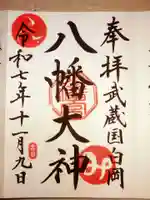 奉拝 武蔵国白岡
八幡大神
令和七年十一月九日